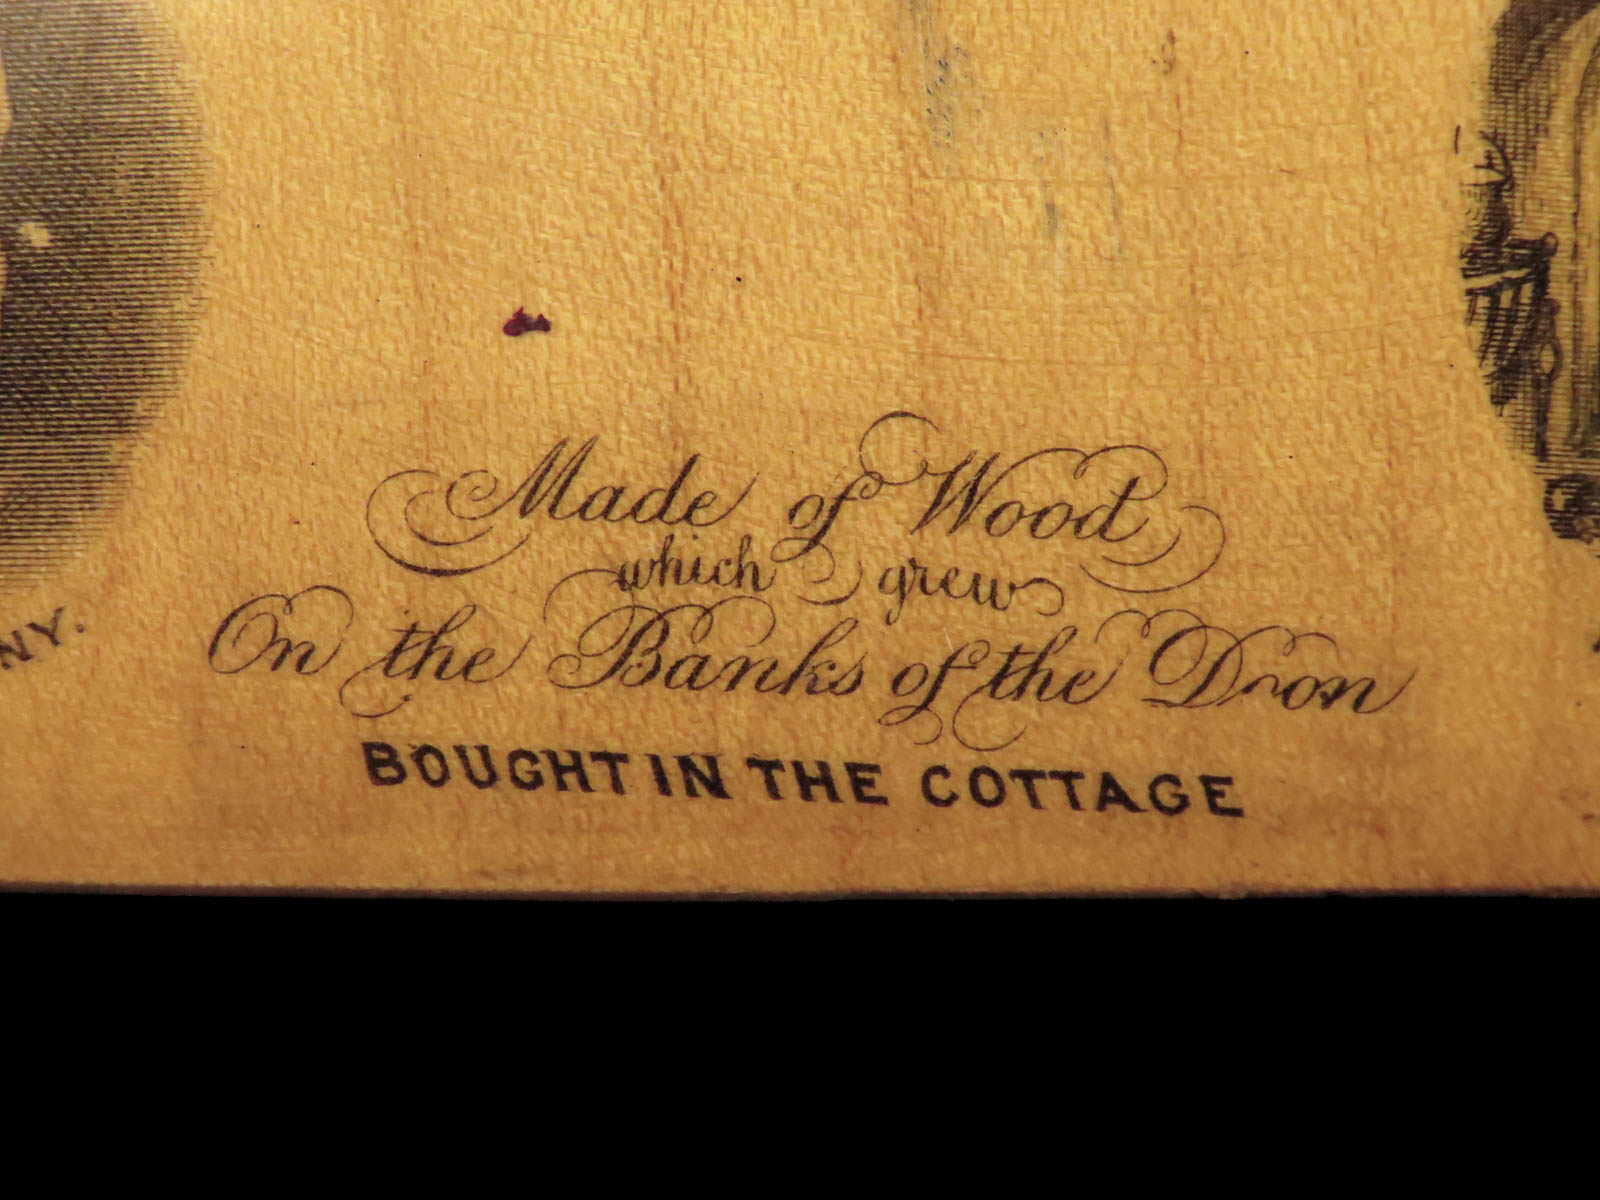 NY.
Made of Wood
which grew
On the Banks of the Doon
BOUGHT IN THE COTTAGE